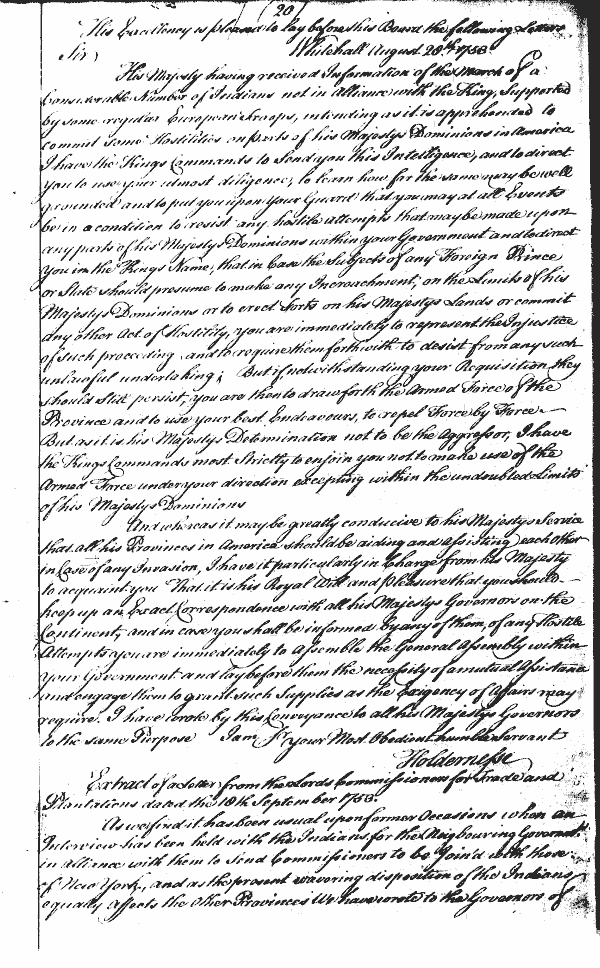 (20)
His Excellency is pleased to lay before this Board the following Letters
Whitehall August 28th 1753
Sir,
His Majesty having received Information of the March of a
Considerable Number of Indians not in Alliance with the King, Supported
by some regular European troops, intending as it is apprehended to
commit some Hostilities on parts of his Majestys Dominions in America
I have the Kings Commands to Send you this Intelligence, and to direct
you to use your utmost diligence, to learn how far the same may be well
grounded and to put you upon your Guard that you may at all Events
be in a condition to resist any hostile attempts that may be made upon
any parts of his Majestys Dominions within your Government and to direct
you in the Kings Name, that in Case the Subjects of any Foreign Prince
or State should presume to make any Incroachment, on the Limits of his
Majestys Dominions or to erect Forts on his Majestys Lands or commit
any other Act of Hostility, you are immediately to represent the Injustice
of such proceeding and to require them forthwith to desist from any such
unlawful undertaking; But if notwithstanding your Requisition they
should still persist, you are then to draw forth the Armed Force of the
Province and to use your best Endeavours, to repel Force by Force
But as it is his Majestys Determination not to be the Aggressor, I have
the Kings Commands most Strictly to enjoin you not to make use of the
Armed Force under your direction excepting within the undoubted Limits
of his Majestys Dominions
And whereas it may be greatly conducive to his Majestys Service
that all his Provinces in America should be aiding and Assisting each other
in Case of any Invasion, I have it particularly in Charge from his Majesty
to acquaint you That it is his Royal Will and pleasure that you should
keep up an Exact Correspondence with all his Majestys Governors on the
Continent, and in case you shall be informed by any of them, of any Hostile
Attempts you are immediately to Assemble the General Assembly within
your Government and lay before them the necessity of a mutual Assistance
and engage them to grant such Supplies as the Exigency of Affairs may
require. I have wrote by this Conveyance to all his Majestys Governors
to the same Purpose I am Sr your Most Obedient humble Servant
Holdernesse
Extract of a Letter from the Lords Commissioners for Trade and
Plantations dated the 18th September 1753.
As we find it has been usual upon former Occasions when an
Interview has been held with the Indians for the Neigbouring Governmts
in alliance with them to Send Commissioners to be Join'd with those
of New York, and as the present wavering disposition of the Indians
equally affects the other Provinces We have wrote to the Governors of